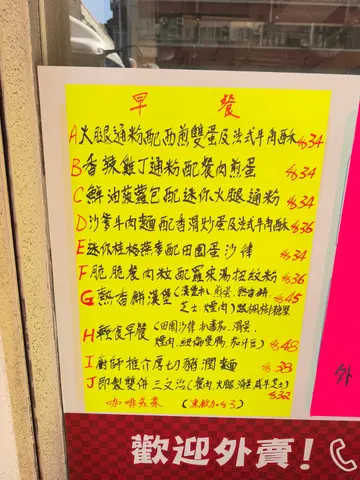 早餐
A 火腿通粉配西煎雙蛋及法式牛角酥 $34
B 香辣雞丁通粉配餐肉煎蛋 $34
C 鮮油菠蘿包配迷你火腿通粉 $34
D 沙爹牛肉麵配香滑炒蛋及法式牛角酥 $36
E 迷你桂格燕麥配田園蛋沙律 $34
F 脆脆餐肉粒配羅宋湯扭紋粉 $36
G 熱香餅漢堡(漢堡扒.煎蛋.熱香餅
芝士.煙肉)跟楓樹糖漿 $45
H 輕食早餐(田園沙律.扒蕃茄.滑蛋.
煙肉.紐倫堡腸.茄汁豆) $48
I 廚師推介厚切豬潤麵 $38
J 即製雙併三文治(餐肉.火腿.雞蛋.咸牛.芝士) $32
咖啡或茶 (凍飲加$3)
外
歡迎外賣!